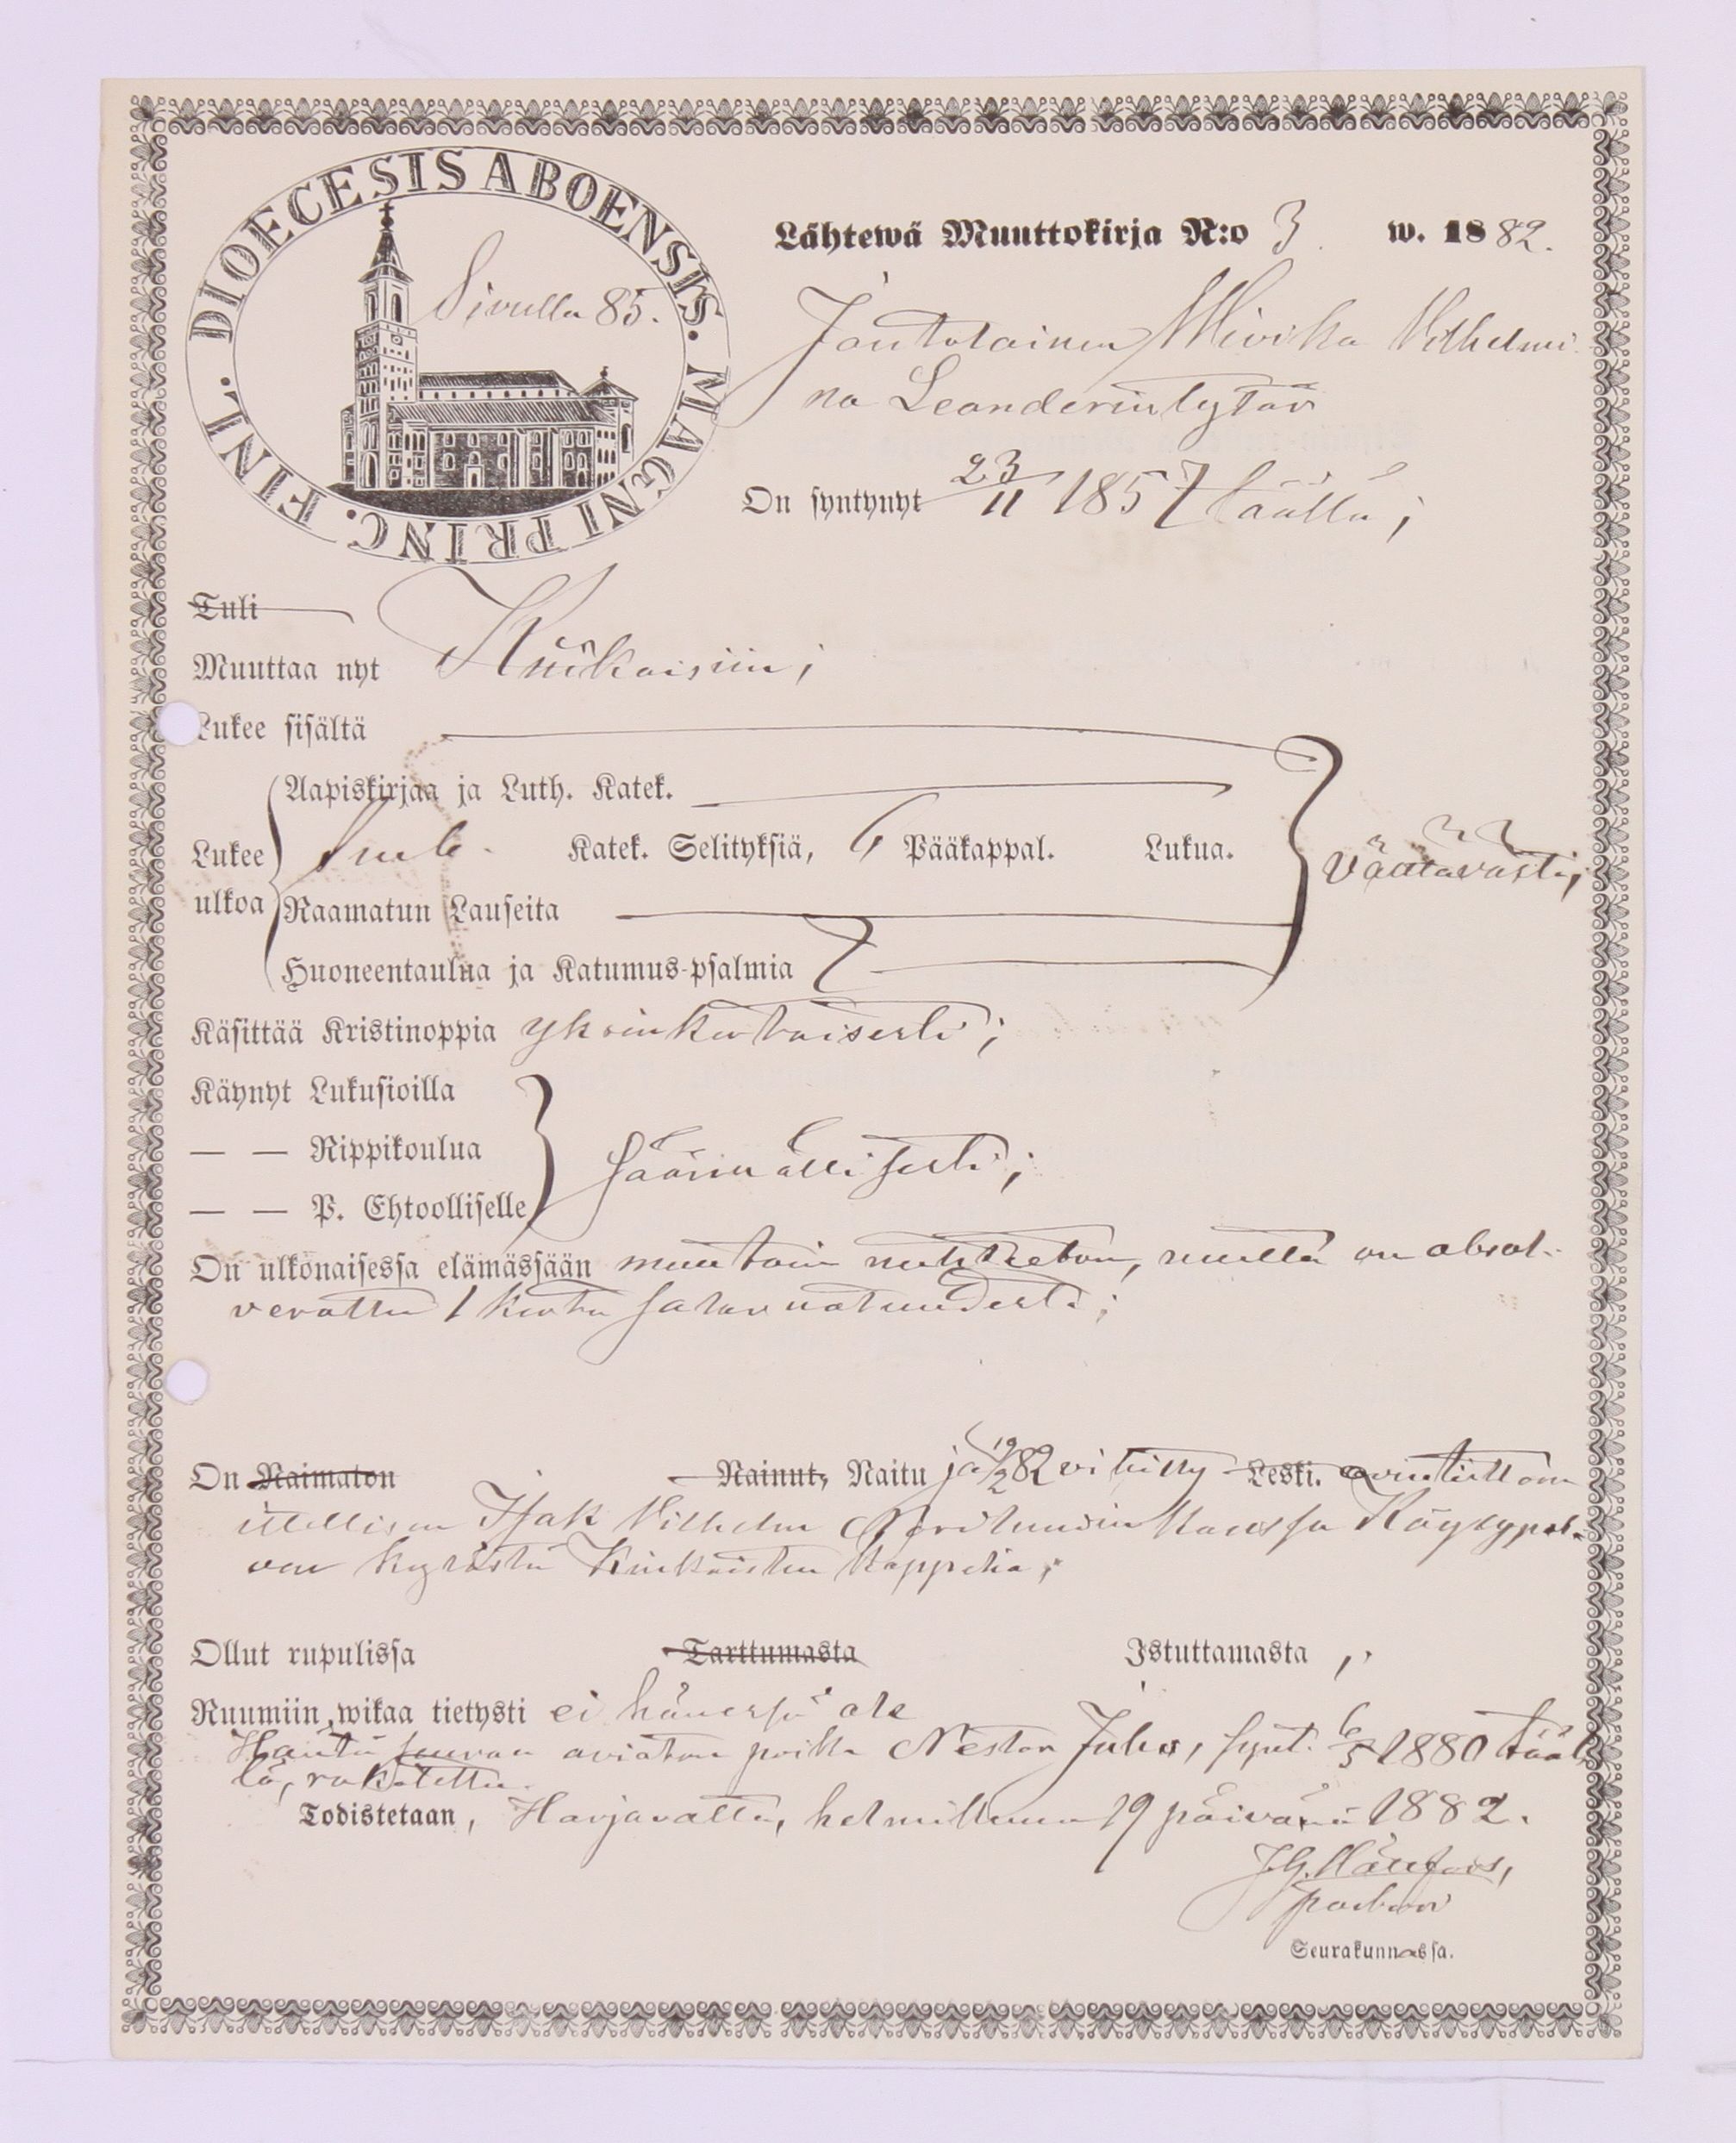 DIOECESIS ABOENSIS. MAGNI PRINC. FINL.
Sivulla 85.
Lähtewä Muuttokirja N:o 3 w. 1882.
Mivika Vilhelmi
na Leanderintytär
On syntynyt 23/11 1857 täällä;
Tuli
Muuttaa nyt Kiukaisiin;
Lukee sisältä
Aapiskirjaa ja Luth. Katek.
Lukee ulkoa
Katek. Selityksiä, 6 Pääkappal. Lukua.
Välttävästi;
Raamatun Lauseita
Huoneentaulua ja Katumus-psalmia 7
Käsittää Kristinoppia yksinkertaisesti;
Käynyt Lukusioilla
— — Rippikoulua
säännöllisesti;
— — P. Ehtoolliselle
On ulkonaisessa elämässään muutoin nuhteeton, mutta on absol-
verattu 1 kerta salavuoteudesta;
On Naimaton Nainut, Naitu ja 19/2 82 vihitty Leski.
itsellisen Isak Vilhelm kanssa
van kylästä Kiukaisten kappelia;
Ollut rupulissa Tarttumasta Istuttamasta,
Ruumiin wikaa tietysti ei hänessä ole
Häntä seuraa avioton poika Nestor Juho, synt. 6/5 1880 tääl
lä, rokotettu.
Todistetaan, Harjavalta, helmikuun 19 päivänä 1882.
pastori
Seurakunnassa.